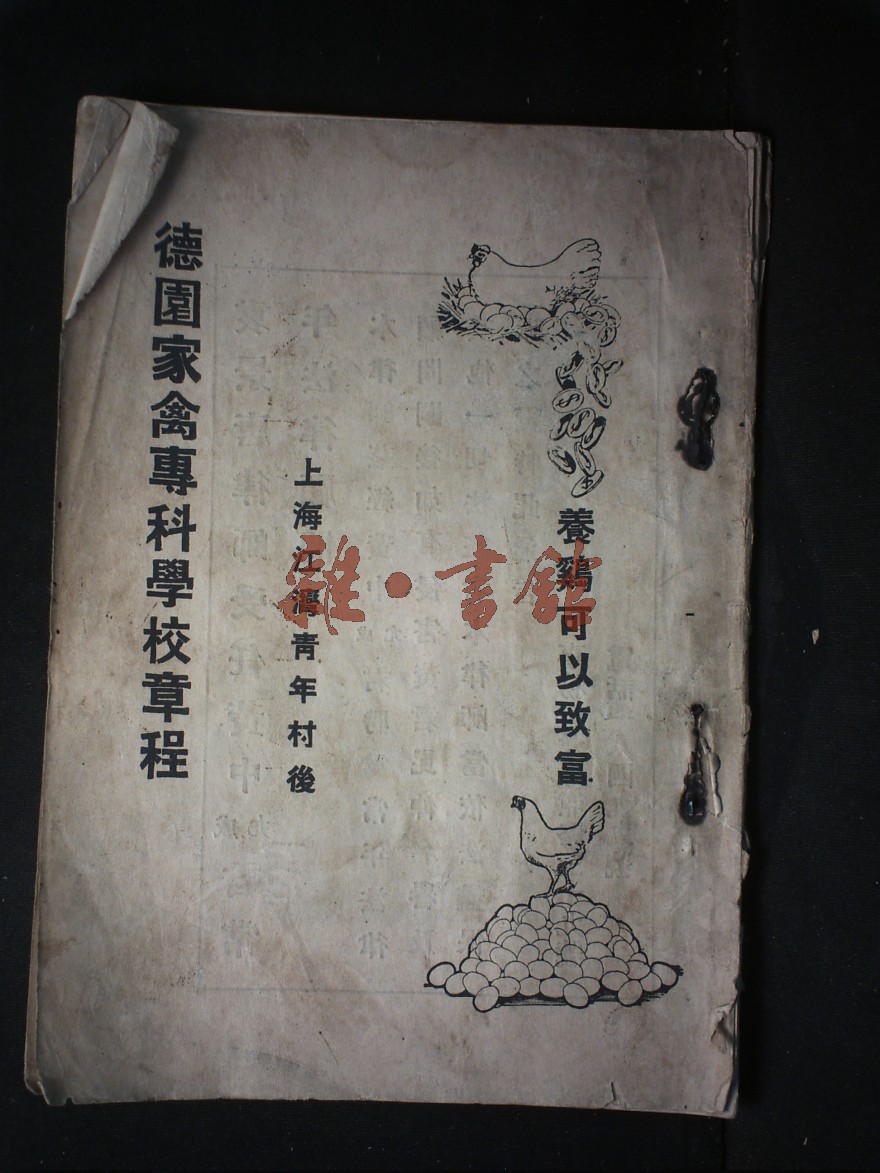 養鷄可以致富
上海江灣青年村後
德園家禽專科學校章程
雜·書館